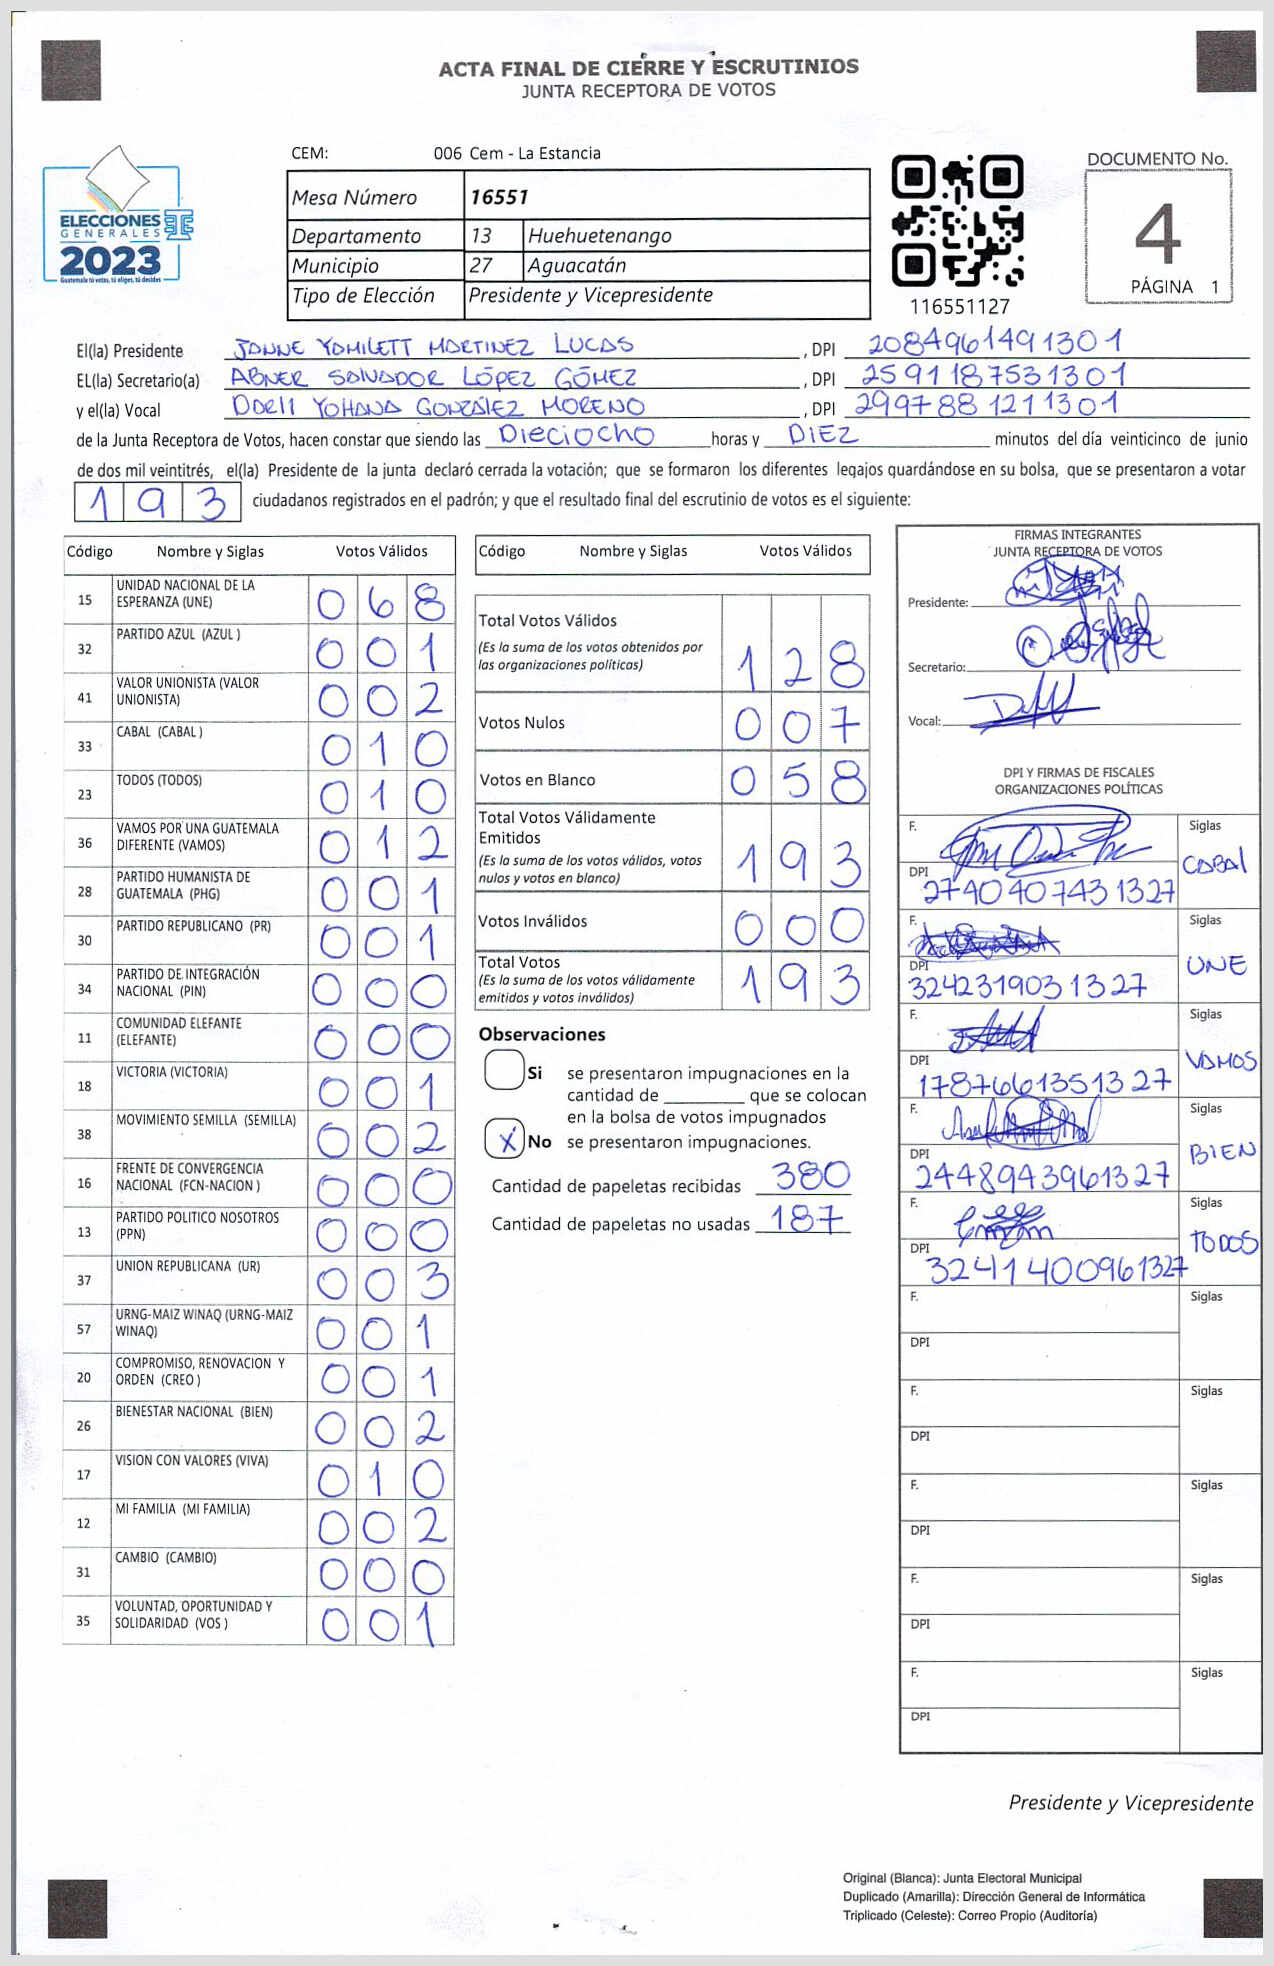 ACTA FINAL DE CIERRE Y ESCRUTINIOS
JUNTA RECEPTORA DE VOTOS
ELECCIONES
GENERALES
2023
Guatemala tú votas, tú eliges, tú decides
CEM: 006 Cem - La Estancia
Mesa Número 16551
Departamento 13 Huehuetenango
Municipio 27 Aguacatán
Tipo de Elección Presidente y Vicepresidente
116551127
DOCUMENTO No.
4
PÁGINA 1
El(la) Presidente JANNE YAMILETT MARTINEZ LUCAS, DPI 2084961491301
EL(la) Secretario(a) ABNER SALVADOR LÓPEZ GÓMEZ, DPI 2591187531301
y el(la) Vocal DARLI YOHANA GONZÁLEZ MORENO, DPI 2997881211301
de la Junta Receptora de Votos, hacen constar que siendo las Dieciocho horas y DIEZ minutos del día veinticinco de junio
de dos mil veintitrés, el(la) Presidente de la junta declaró cerrada la votación; que se formaron los diferentes legajos quardándose en su bolsa, que se presentaron a votar
193 ciudadanos registrados en el padrón; y que el resultado final del escrutinio de votos es el siguiente:
Código Nombre y Siglas Votos Válidos
15 UNIDAD NACIONAL DE LA ESPERANZA (UNE) 068
32 PARTIDO AZUL (AZUL ) 001
41 VALOR UNIONISTA (VALOR UNIONISTA) 002
33 CABAL (CABAL ) 010
23 TODOS (TODOS) 010
36 VAMOS POR UNA GUATEMALA DIFERENTE (VAMOS) 012
28 PARTIDO HUMANISTA DE GUATEMALA (PHG) 001
30 PARTIDO REPUBLICANO (PR) 001
34 PARTIDO DE INTEGRACIÓN NACIONAL (PIN) 000
11 COMUNIDAD ELEFANTE (ELEFANTE) 000
18 VICTORIA (VICTORIA) 001
38 MOVIMIENTO SEMILLA (SEMILLA) 002
16 FRENTE DE CONVERGENCIA NACIONAL (FCN-NACION ) 000
13 PARTIDO POLITICO NOSOTROS (PPN) 000
37 UNION REPUBLICANA (UR) 003
57 URNG-MAIZ WINAQ (URNG-MAIZ WINAQ) 001
20 COMPROMISO, RENOVACION Y ORDEN (CREO ) 001
26 BIENESTAR NACIONAL (BIEN) 002
17 VISION CON VALORES (VIVA) 010
12 MI FAMILIA (MI FAMILIA) 002
31 CAMBIO (CAMBIO) 000
35 VOLUNTAD, OPORTUNIDAD Y SOLIDARIDAD (VOS ) 001
Código Nombre y Siglas Votos Válidos
Total Votos Válidos
(Es la suma de los votos obtenidos por
las organizaciones políticas) 128
Votos Nulos 007
Votos en Blanco 058
Total Votos Válidamente
Emitidos
(Es la suma de los votos válidos, votos
nulos y votos en blanco) 193
Votos Inválidos 000
Total Votos
(Es la suma de los votos válidamente
emitidos y votos inválidos) 193
Observaciones
Si se presentaron impugnaciones en la
cantidad de ________ que se colocan
en la bolsa de votos impugnados
X No se presentaron impugnaciones.
Cantidad de papeletas recibidas 380
Cantidad de papeletas no usadas 187
FIRMAS INTEGRANTES
JUNTA RECEPTORA DE VOTOS
Presidente:
Secretario:
Vocal:
DPI Y FIRMAS DE FISCALES
ORGANIZACIONES POLÍTICAS
F. Siglas CABAL
DPI 2740407431327
F. Siglas UNE
DPI 3242319031327
F. Siglas VAMOS
DPI 1787661351327
F. Siglas BIEN
DPI 2448943961327
F. Siglas TODOS
DPI 3241400961327
F. Siglas
DPI
F. Siglas
DPI
F. Siglas
DPI
F. Siglas
DPI
F. Siglas
DPI
Presidente y Vicepresidente
Original (Blanca): Junta Electoral Municipal
Duplicado (Amarilla): Dirección General de Informática
Triplicado (Celeste): Correo Propio (Auditoría)